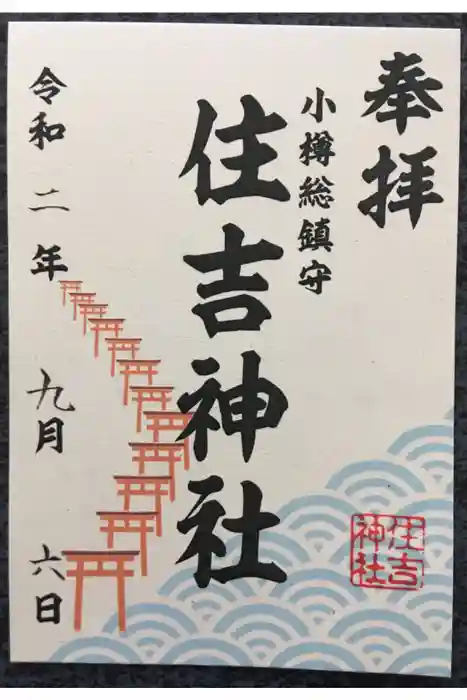 奉拝
小樽総鎮守
住吉神社
令和二年九月六日
住吉
神社